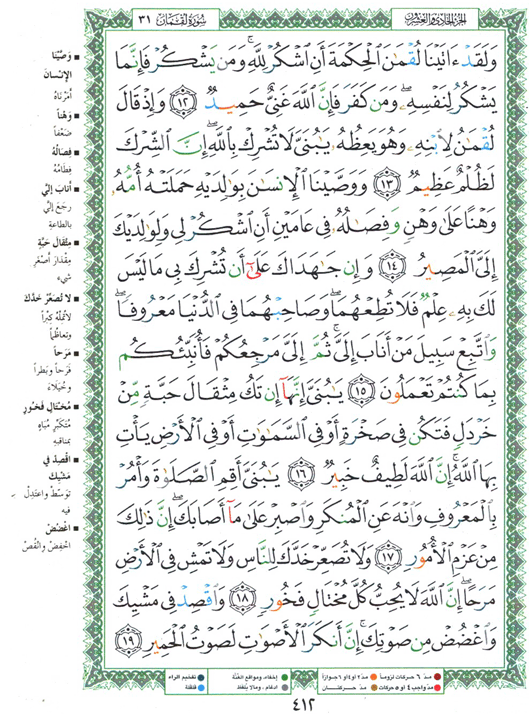 الجزء الحادي والعشرون
سورة لقمان ٣١
وَلَقَدْ ءَاتَيْنَا لُقْمَٰنَ ٱلْحِكْمَةَ أَنِ ٱشْكُرْ لِلَّهِ ۚ وَمَن يَشْكُرْ فَإِنَّمَا
يَشْكُرُ لِنَفْسِهِۦ ۖ وَمَن كَفَرَ فَإِنَّ ٱللَّهَ غَنِىٌّ حَمِيدٌ ١٢ وَإِذْ قَالَ
لُقْمَٰنُ لِٱبْنِهِۦ وَهُوَ يَعِظُهُۥ يَٰبُنَىَّ لَا تُشْرِكْ بِٱللَّهِ ۖ إِنَّ ٱلشِّرْكَ
لَظُلْمٌ عَظِيمٌ ١٣ وَوَصَّيْنَا ٱلْإِنسَٰنَ بِوَٰلِدَيْهِ حَمَلَتْهُ أُمُّهُۥ
وَهْنًا عَلَىٰ وَهْنٍ وَفِصَٰلُهُۥ فِى عَامَيْنِ أَنِ ٱشْكُرْ لِى وَلِوَٰلِدَيْكَ
إِلَىَّ ٱلْمَصِيرُ ١٤ وَإِن جَٰهَدَاكَ عَلَىٰٓ أَن تُشْرِكَ بِى مَا لَيْسَ
لَكَ بِهِۦ عِلْمٌ فَلَا تُطِعْهُمَا ۖ وَصَاحِبْهُمَا فِى ٱلدُّنْيَا مَعْرُوفًا ۖ
وَٱتَّبِعْ سَبِيلَ مَنْ أَنَابَ إِلَىَّ ۚ ثُمَّ إِلَىَّ مَرْجِعُكُمْ فَأُنَبِّئُكُم
بِمَا كُنتُمْ تَعْمَلُونَ ١٥ يَٰبُنَىَّ إِنَّهَآ إِن تَكُ مِثْقَالَ حَبَّةٍ مِّنْ
خَرْدَلٍ فَتَكُن فِى صَخْرَةٍ أَوْ فِى ٱلسَّمَٰوَٰتِ أَوْ فِى ٱلْأَرْضِ يَأْتِ
بِهَا ٱللَّهُ ۚ إِنَّ ٱللَّهَ لَطِيفٌ خَبِيرٌ ١٦ يَٰبُنَىَّ أَقِمِ ٱلصَّلَوٰةَ وَأْمُرْ
بِٱلْمَعْرُوفِ وَٱنْهَ عَنِ ٱلْمُنكَرِ وَٱصْبِرْ عَلَىٰ مَآ أَصَابَكَ ۖ إِنَّ ذَٰلِكَ
مِنْ عَزْمِ ٱلْأُمُورِ ١٧ وَلَا تُصَعِّرْ خَدَّكَ لِلنَّاسِ وَلَا تَمْشِ فِى ٱلْأَرْضِ
مَرَحًا ۖ إِنَّ ٱللَّهَ لَا يُحِبُّ كُلَّ مُخْتَالٍ فَخُورٍ ١٨ وَٱقْصِدْ فِى مَشْيِكَ
وَٱغْضُضْ مِن صَوْتِكَ ۚ إِنَّ أَنكَرَ ٱلْأَصْوَٰتِ لَصَوْتُ ٱلْحَمِيرِ ١٩
وَصَّيْنَا
الإنسانَ
أمَرْناهُ
وَهْناً
ضَعْفاً
فِصَالُهُ
فِطَامُهُ
أَنابَ إليّ
رجَعَ إليّ
بالطاعةِ
مِثْقَالَ حَبّةٍ
مِقْدَارَ أصْغَرِ
شيء
لا تُصَعِّرْ خدّكَ
لا تُمِلْهُ كِبْراً
وتعاظُماً
مَرَحاً
فَرَحاً وبَطَراً
وخُيَلاءَ
مُخْتَالٍ فَخُورٍ
مُتَكَبِّرٍ مُبَاهٍ
بمناقِبِهِ
اقْصِدْ فِي
مَشْيِكَ
توسّطْ واعتدِلْ
فيه
اغْضُضْ
اخفِضْ وانْقُصْ
مدّ ٦ حركات لزوماً مدّ ٢ أو ٤ أو ٦ جوازاً
مدّ واجب ٤ أو ٥ حركات مدّ حركتان
إخفاء، ومواقع الغُنَّة
إدغام، وما لا يُلفَظ
تفخيم الراء
قلقلة
٤١٢